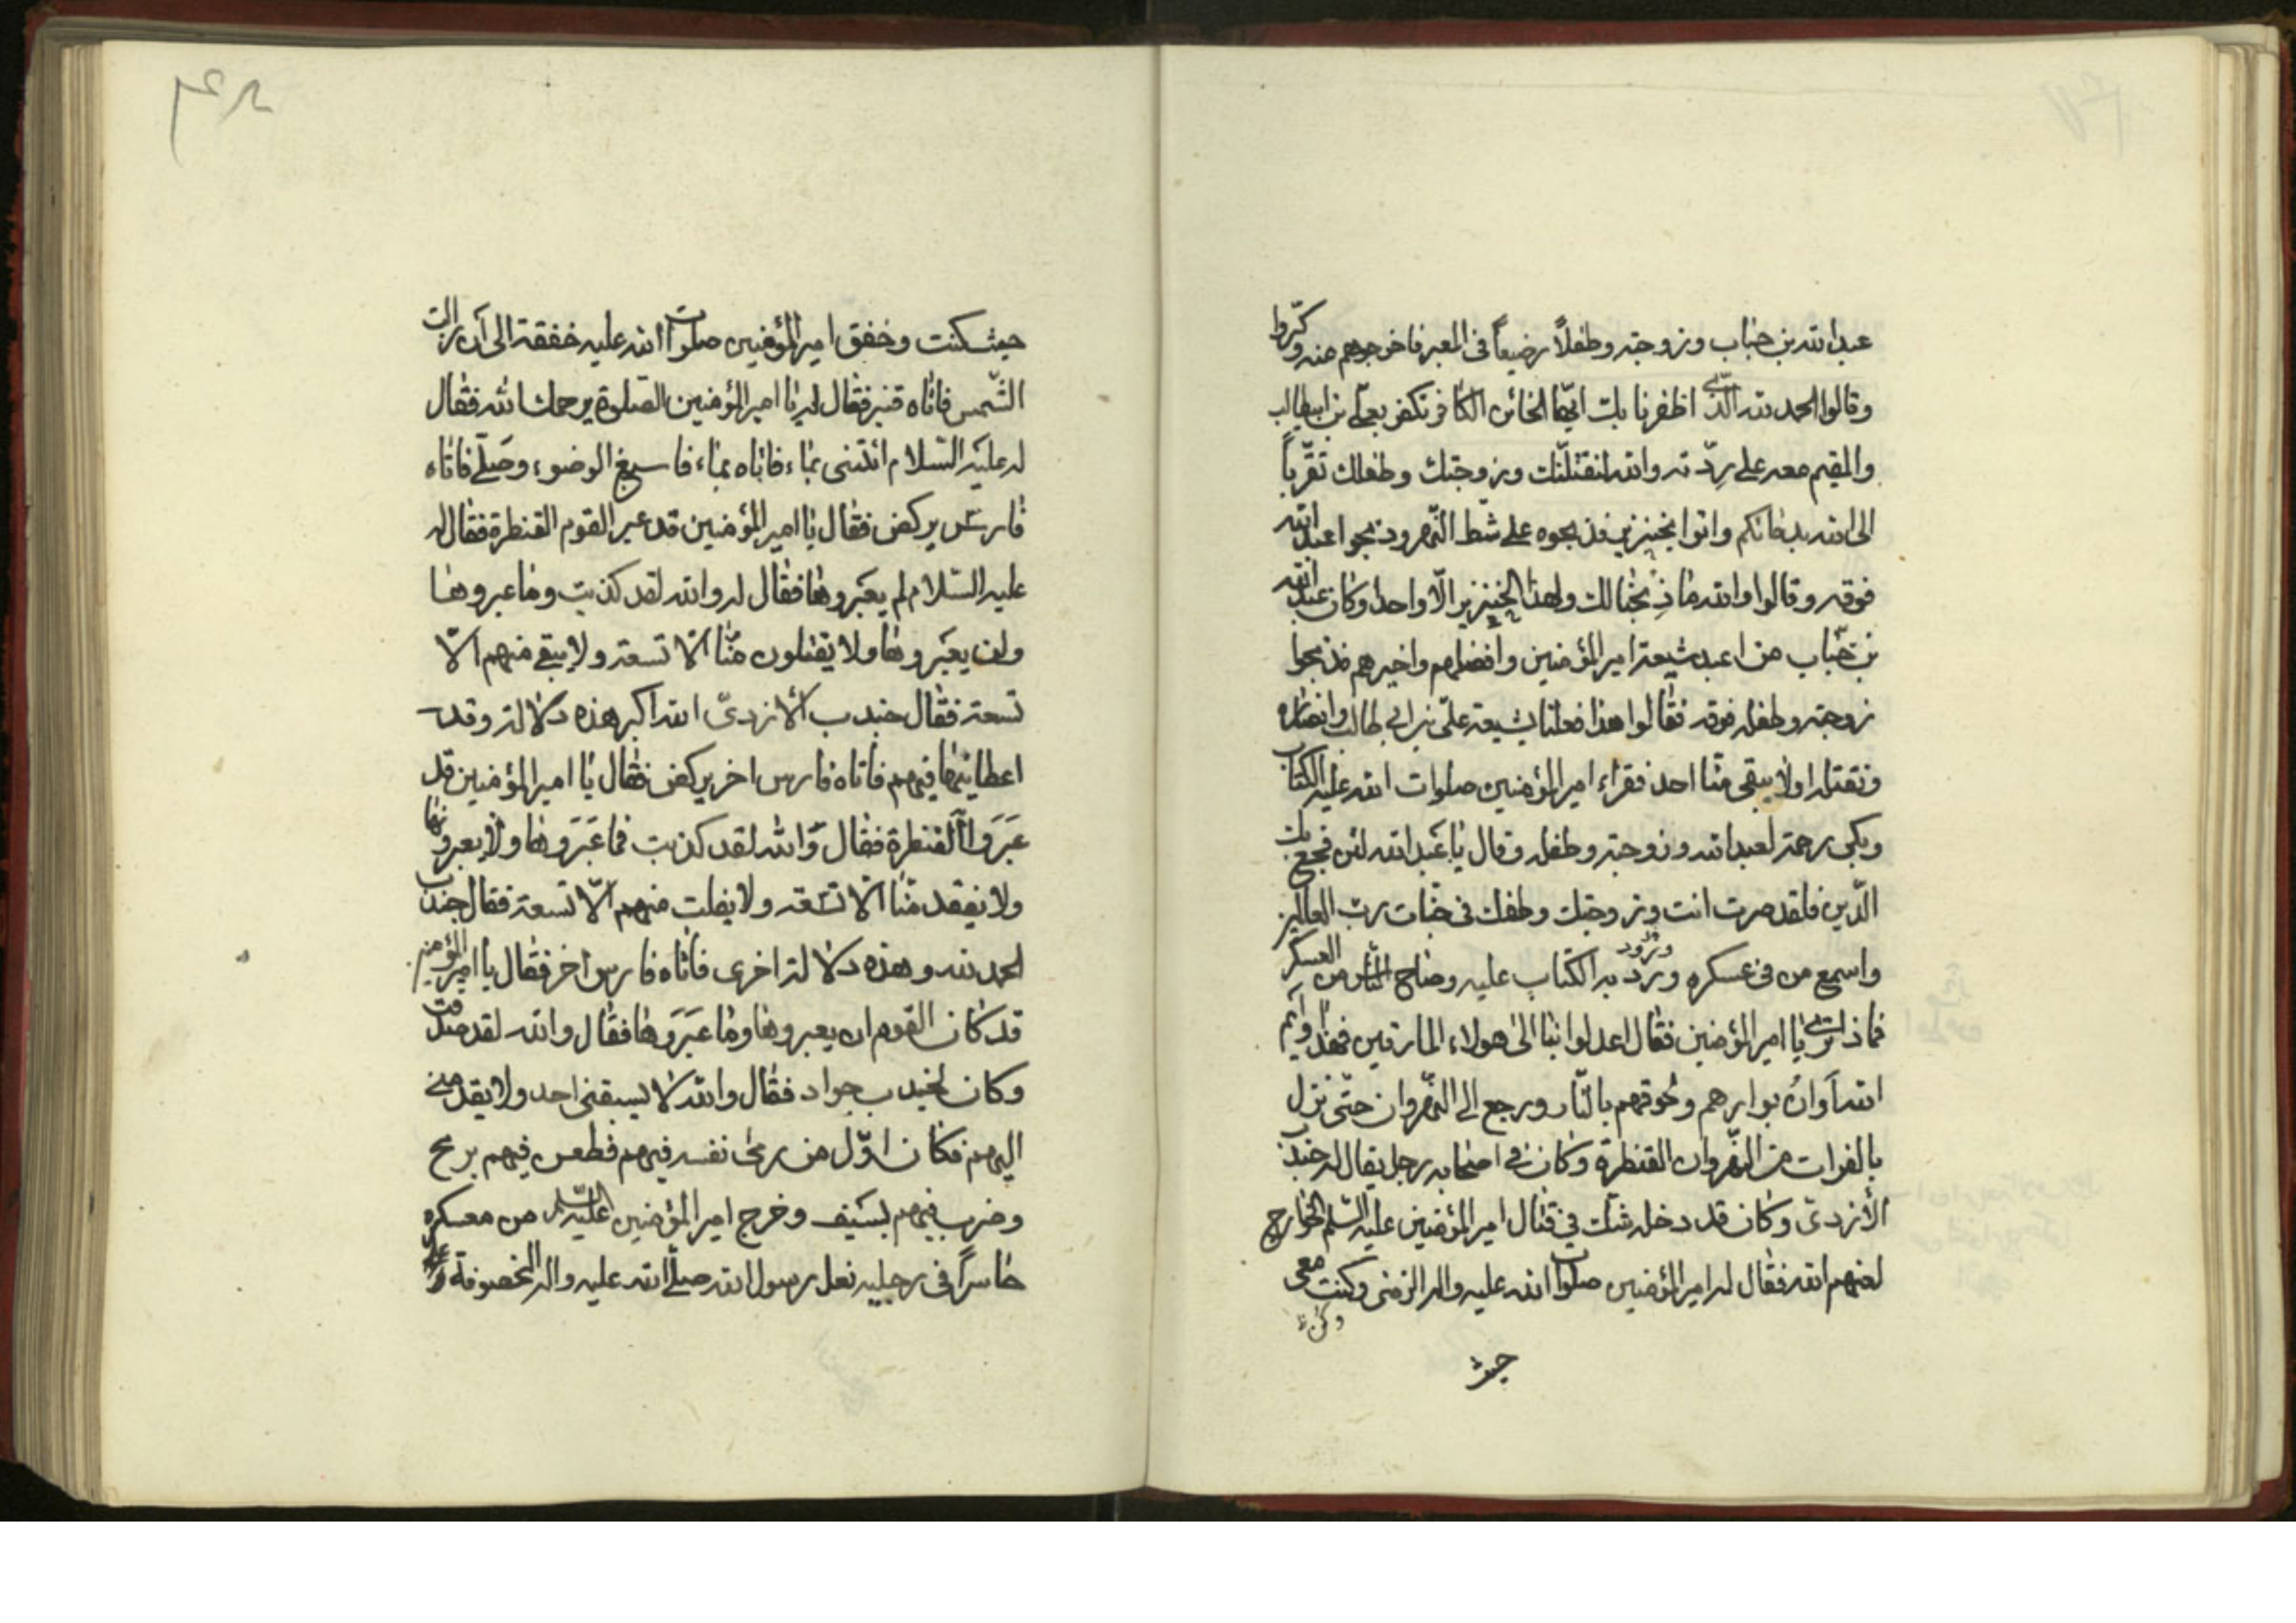 عبد الله بن خباب وزوجته وطفلاً رضيعاً فى المعبر فاخرجوهم منه وكبّروا
وقالوا الحمد لله الذّى اظفرنا بك ايّها الخائن الكافر تكفر بعلّى بن ابيطالب
والمقيم معه على رِدّته والله لنقتلنّك وزوجتك وطفلك تقّرباً
الى الله بدمائكم واتوا بخنزير فذبحوه على شّط النّهر وذبحوا عبد الله
فوقه وقالوا والله ما ذبحنا لك ولهذا الخنزير الّا واحداً وكان عبد الله
بن خبّاب من اعبد شيعة امير المؤمنين وافضلهم واخيرهم فذبحوا
زوجته وطفله فوقه فقالوا هذا فعلنا بشيعة علىّ بن ابى طالب وانصاره
ونقتله اولا يبقى منّا احد فقراء امير المؤمنين صلوات الله عليه الكتاب
وبكى رحمة لعبد الله وزوجته وطفله وقال يا عَبد الله لئن فجع بك
الدّين فلقد صرت انت وزوجتك وطفلك فى جنّات ربّ العالمين
واسمع من فى عسكره وبرّد به الكتاب عليه وصاح النّاس من العسكر
فماذا ترى يا امير المؤمنين فقال اعدلوا بنا الى هولاء المارقين فهذا وايم
الله اَوان بوارهم ولحوقهم بالنّار ورجع الى النّهروان حتّى نزل
بالفرات من النّهروان القنطرة وكان فى اصحابه رجل يقال له جندب
الأزدىّ وكان قد دخله شك فى قتال امير المؤمنين عليه السّلم الخوارج
لعنهم الله فقال له امير المؤمنين صلوات الله عليه واله الزمنى وكنت معى
حيث
حيث كنت وخفق امير المؤمنين صلوات الله عليه خفقة الى اَن زالت
الشّمس فاتاه قنبر فقال له يا امير المؤمنين الصلوة يرحمك الله فقال
له عليه السّلام ائتنى بماء فاتاه بماء فاسبغ الوضوء وصَلّى فاتاه
فارس يركض فقال يا امير المؤمنين قد عبر القوم القنطرة فقال له
عليه السّلام لم يعبروها فقال له والله لقد كذبت وما عبروها
ولن يعبَروها ولا يقتلون منّا الّا تسعة ولا يبقى منهم الّا
تسعة فقال جندب الأزدىّ الله اكبر هذه دلالة وقد
اعطانيها فيهم فاتاه فارس اخر يركض فقال يا امير المؤمنين قد
عَبَروا القنطرة فقال وَالله لقد كذبت فما عَبَروها ولا يعبرونها
ولا نفقد منّا الّا تسعة ولا يفلت منهم الّا تسعة فقال جندب
الحمد لله وهذه دلالة اخرى فاتاه فارس اخر فقال يا امير المؤمنين
قد كان القوم ان يعبروها وما عبَروها فقال والله لقد صدقت
وكان لجندب جواد فقال والله لا يسبقنى احد ولا يقدمنى
اليهم فكان اوّل من رمى نفسه فيهم فطعن فيهم برمح
وضرب فيهم بسَيف وخرج امير المؤمنين عليه السّلم من معسكره
حاسراً فى رجليه نعل رسول الله صلّى الله عليه واله المخصوفة